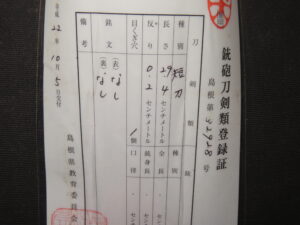 銃砲刀剣類登録証
島根第 号
刀剣類
種別 短刀
長さ 29.4 センチメートル
反り 0.2 センチメートル
目くぎ穴 1個
銘文 (表)なし
(裏)なし
備考
種別
全長
銃身長
口径
平成22年10月5日交付
島根県教育委員会